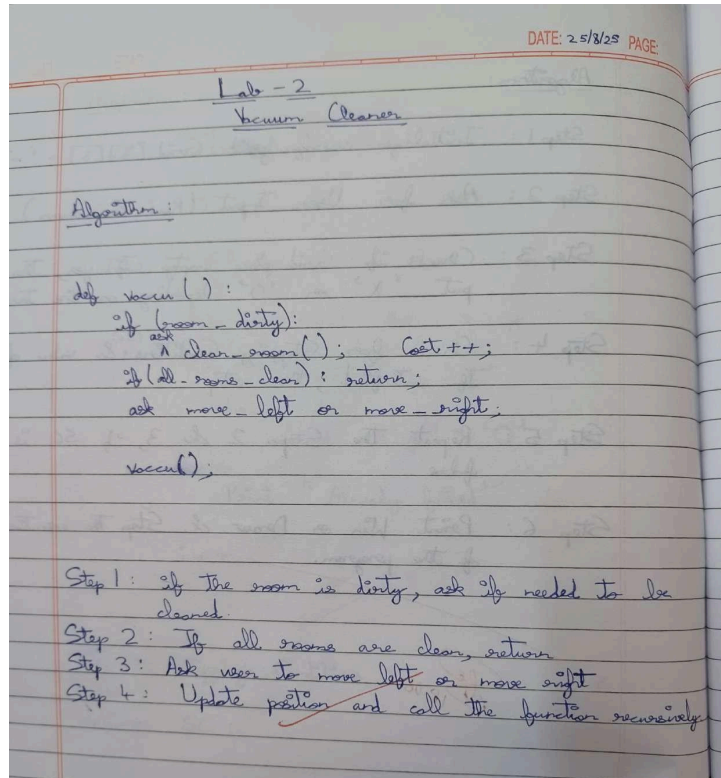 DATE: 25/8/25 PAGE:
Lab - 2
Vacuum Cleaner
Algorithm:
def vaccu():
if (room_dirty):
ask
^ clean_room(); Cost++;
if(all_rooms_clean): return;
ask move_left or move_right;
vaccu();
Step 1: if the room is dirty, ask if needed to be
cleaned.
Step 2: If all rooms are clean, return
Step 3: Ask user to move left or move right
Step 4: Update position and call the function recursively